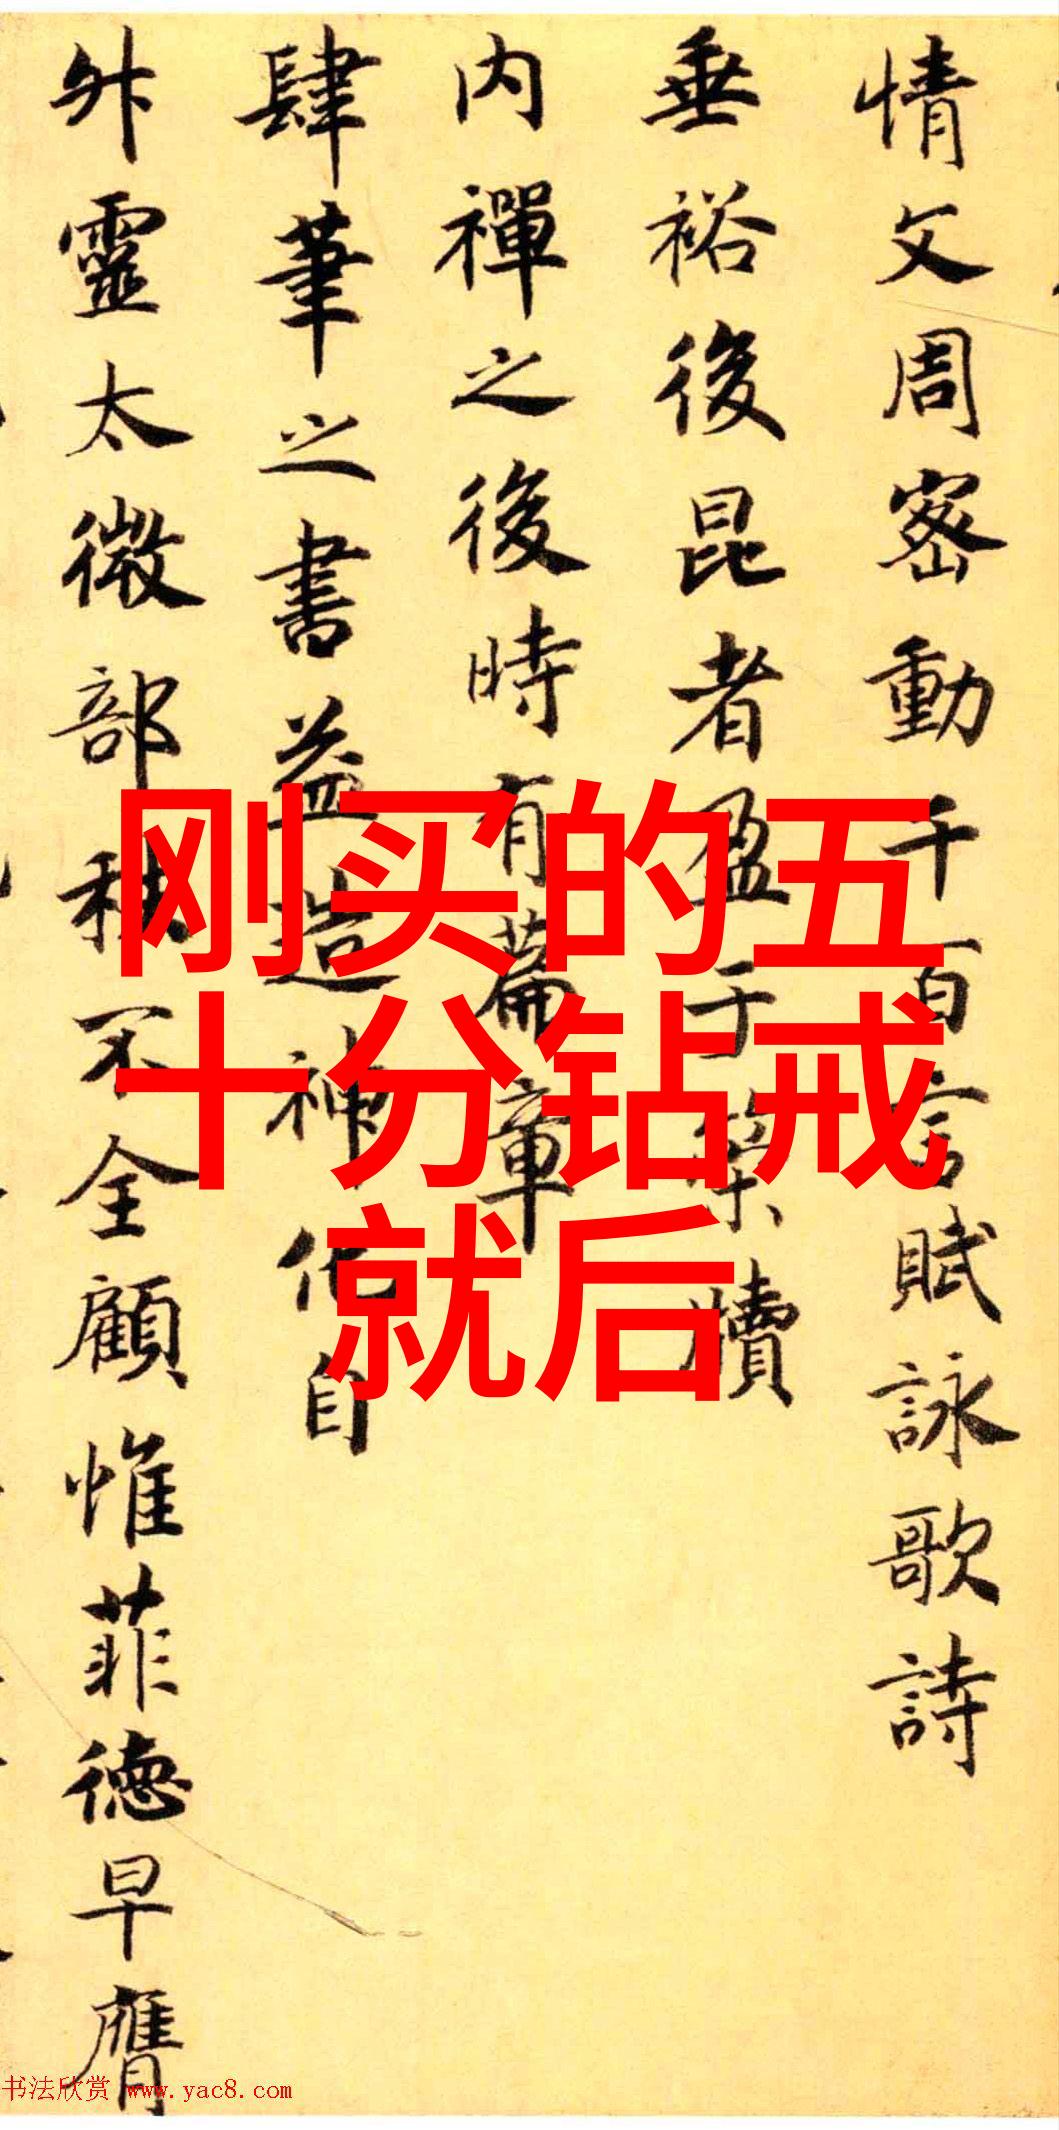 情文周密動千百言賦詠歌詩
垂裕後昆者盈于
牘
内禪之後時有篇章
肆筆之書益造神化自
外靈太微部秩不全顧惟菲德早膺
刚买的五
十分钻戒
就后
书法欣赏 www.yac8.com